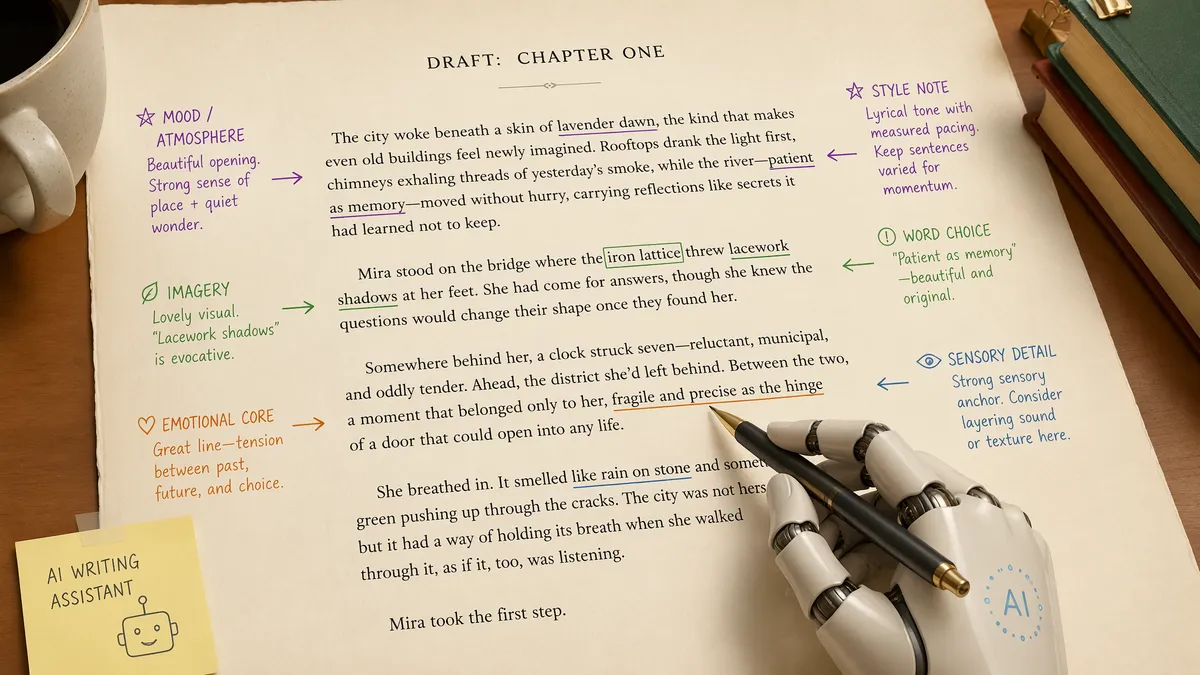 DRAFT: CHAPTER ONE
MOOD /
ATMOSPHERE
Beautiful opening.
Strong sense of
place + quiet
wonder.
IMAGERY
Lovely visual.
"Lacework shadows"
is evocative.
EMOTIONAL CORE
Great line—tension
between past,
future, and choice.
The city woke beneath a skin of lavender dawn, the kind that makes
even old buildings feel newly imagined. Rooftops drank the light first,
chimneys exhaling threads of yesterday's smoke, while the river—patient
as memory—moved without hurry, carrying reflections like secrets it
had learned not to keep.
Mira stood on the bridge where the iron lattice threw lacework
shadows at her feet. She had come for answers, though she knew the
questions would change their shape once they found her.
Somewhere behind her, a clock struck seven—reluctant, municipal,
and oddly tender. Ahead, the district she'd left behind. Between the two,
a moment that belonged only to her, fragile and precise as the hinge
of a door that could open into any life.
She breathed in. It smelled like rain on stone and
green pushing up through the cracks. The city was not hers
but it had a way of holding its breath when she walked
through it, as if it, too, was listening.
Mira took the first step.
STYLE NOTE
Lyrical tone with
measured pacing.
Keep sentences
varied for
momentum.
WORD CHOICE
"Patient as memory"
—beautiful and
original.
SENSORY DETAIL
Strong sensory
anchor. Consider
layering sound
or texture here.
AI WRITING
ASSISTANT
AI